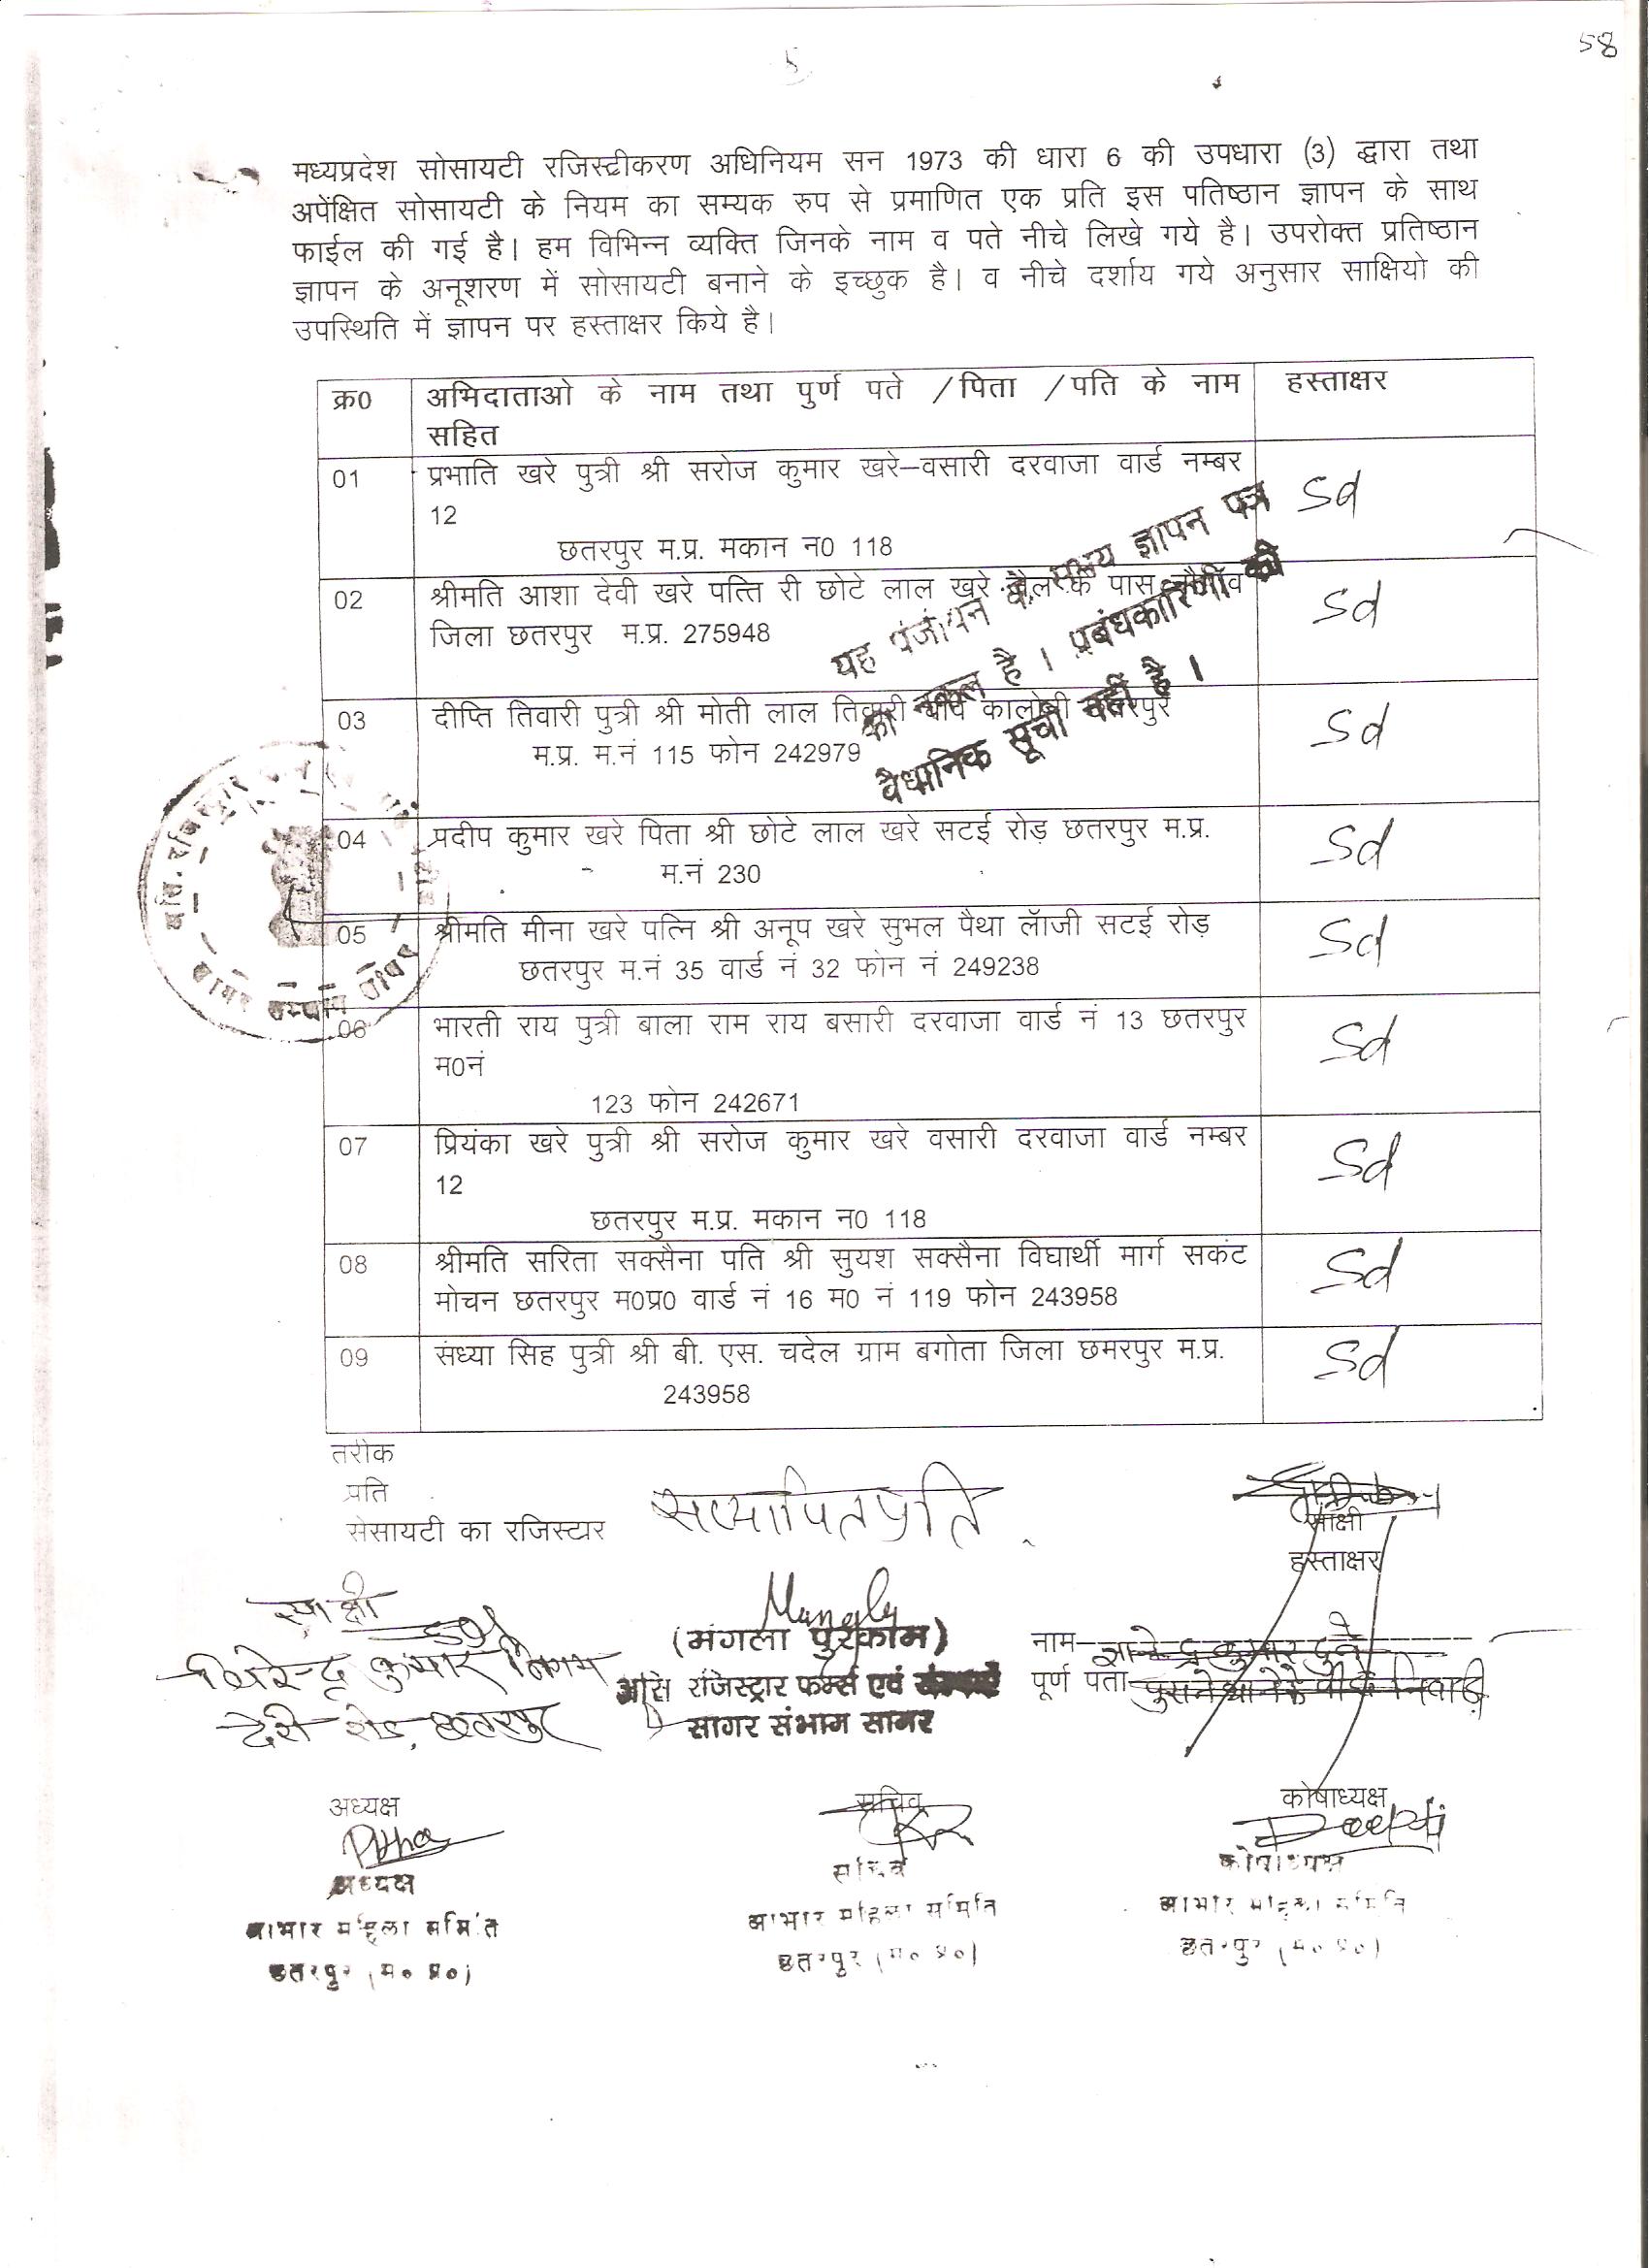 58
5
मध्यप्रदेश सोसायटी रजिस्टीकरण अधिनियम सन 1973 की धारा 6 की उपधारा (3) द्वारा तथा
अपेंक्षित सोसायटी के नियम का सम्यक रुप से प्रमाणित एक प्रति इस पतिष्ठान ज्ञापन के साथ
फाईल की गई है। हम विभिन्न व्यक्ति जिनके नाम व पते नीचे लिखे गये है। उपरोक्त प्रतिष्ठान
ज्ञापन के अनूशरण में सोसायटी बनाने के इच्छुक है। व नीचे दर्शाय गये अनुसार साक्षियो की
उपस्थिति में ज्ञापन पर हस्ताक्षर किये है।
क्र0 अभिदाताओ के नाम तथा पुर्ण पते /पिता /पति के नाम हस्ताक्षर
सहित
01 प्रभाति खरे पुत्री श्री सरोज कुमार खरे–वसारी दरवाजा वार्ड नम्बर Sd
12
छतरपुर म.प्र. मकान न0 118
02 श्रीमति आशा देवी खरे पत्ति री छोटे लाल खरे के पास Sd
जिला छतरपुर म.प्र. 275948
यह पंजीयन के समय ज्ञापन पत्र
की नकल है। प्रबंधकारिणी की
वैधानिक सूची नहीं है।
03 दीप्ति तिवारी पुत्री श्री मोती लाल तिवारी कालोनी छतरपुर Sd
म.प्र. म.नं 115 फोन 242979
04 प्रदीप कुमार खरे पिता श्री छोटे लाल खरे सटई रोड़ छतरपुर म.प्र. Sd
म.नं 230
05 श्रीमति मीना खरे पत्नि श्री अनूप खरे सुभल पैथा लॅाजी सटई रोड़ Sd
छतरपुर म.नं 35 वार्ड नं 32 फोन नं 249238
06 भारती राय पुत्री बाला राम राय बसारी दरवाजा वार्ड नं 13 छतरपुर Sd
म0नं
123 फोन 242671
07 प्रियंका खरे पुत्री श्री सरोज कुमार खरे वसारी दरवाजा वार्ड नम्बर Sd
12
छतरपुर म.प्र. मकान न0 118
08 श्रीमति सरिता सक्सैना पति श्री सुयश सक्सैना विघार्थी मार्ग सकंट Sd
मोचन छतरपुर म0प्र0 वार्ड नं 16 म0 नं 119 फोन 243958
09 संध्या सिह पुत्री श्री बी. एस. चदेल ग्राम बगोता जिला छमरपुर म.प्र. Sd
243958
तरीक
प्रति
सेसायटी का रजिस्टार
सत्यापित प्रति
साक्षी
हस्ताक्षर
साक्षी
Sd
कुमार निगम
देरी रोड, छतरपुर
(मंगला पुरकाम)
असि रजिस्ट्रार फर्म्स एवं
सागर संभाग सागर
नाम- कुमार दुबे
पूर्ण पता- पुराने थाने के पीछे निवाड़ी
अध्यक्ष सचिव कोषाध्यक्ष
अध्यक्ष
आभार महिला समिति
छतरपुर (म० प्र०)
सचिव
आभार महिला समिति
छतरपुर (म० प्र०)
कोषाध्यक्ष
आभार महिला समिति
छतरपुर (म० प्र०)